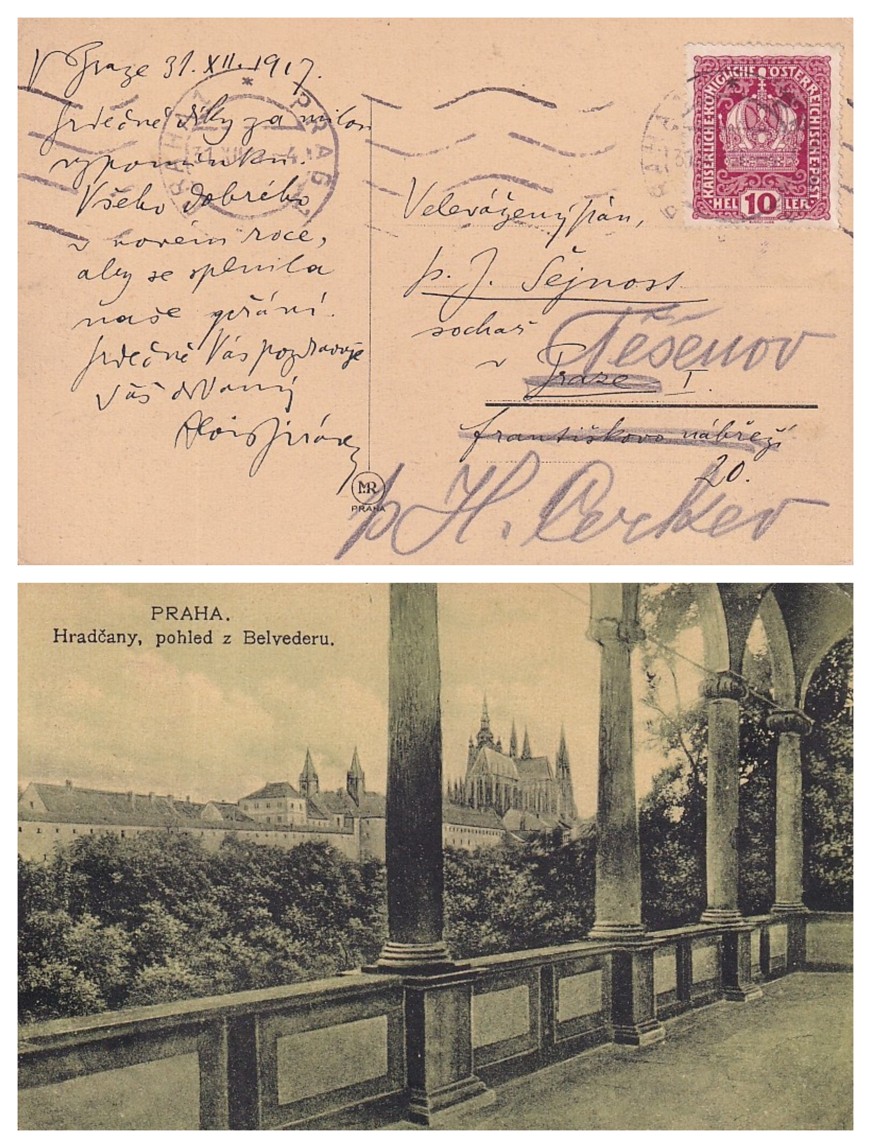 V Praze 31. XII. 1917.
Srdečné díky za milou
vzpomínku.
Všeho dobrého
v novém roce,
aby se splnila
naše přání.
Srdečně Vás pozdravuje
Váš oddaný
Alois Jirásek
PRAHA
PRAG
31. XII.
KAISERLICHE KÖNIGLICHE ÖSTERREICHISCHE POST
HEL 10 LER
Velevážený pán,
p. J. Šejnost
sochař
v Praze I.
Františkovo nábřeží
20.
Těšenov
p. H. Cerkev
MR
PRAHA
PRAHA.
Hradčany, pohled z Belvederu.